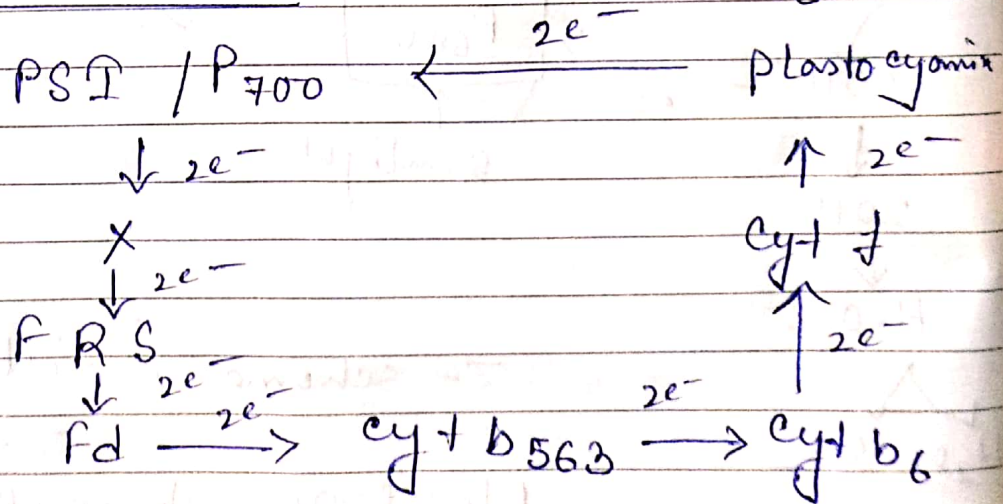 2e⁻
PSI / P₇₀₀ ← Plastocyanin
↓ 2e⁻ ↑ 2e⁻
X Cyt f
↓ 2e⁻ ↑ 2e⁻
FRS
↓ 2e⁻ 2e⁻ 2e⁻
Fd → Cyt b₅₆₃ → Cyt b₆